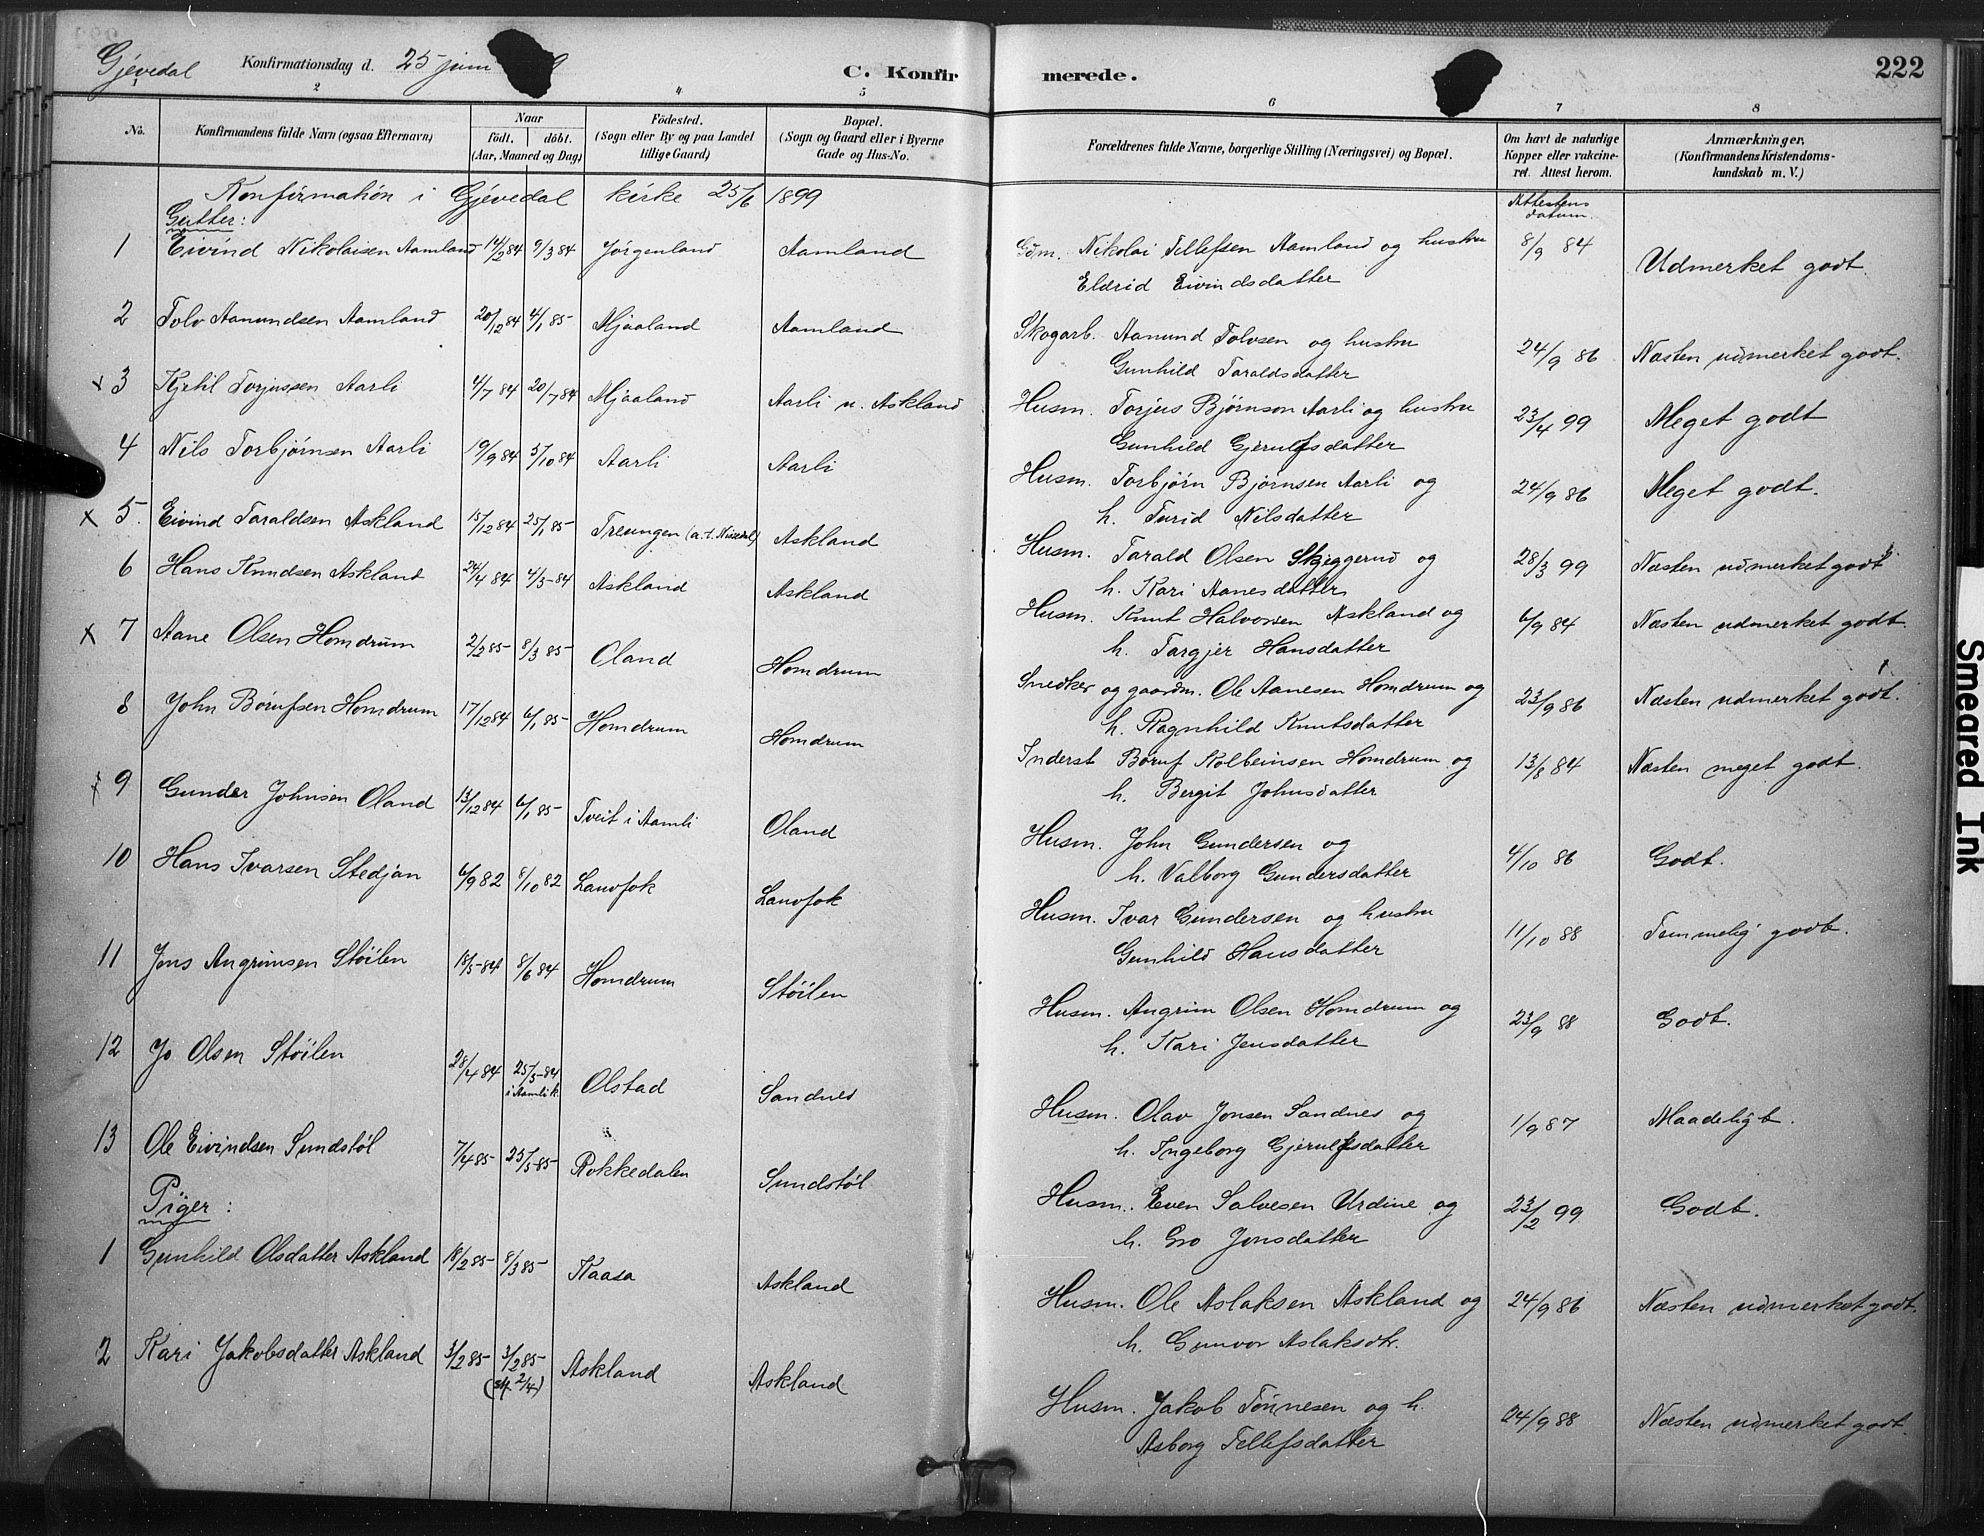 Gjévedal
Konfirmationsdag d. 25 juni 9
C. Konfirmerede.
222
2 4 5 6 7 8
No.
Konfirmandens fulde Navn (ogsaa Efternavn)
Naar
født. døbt.
(Aar, Maaned og Dag)
Fødested.
(Sogn eller By og paa Landet
tillige Gaard)
Bopæl.
(Sogn og Gaard eller i Byerne
Gade og Hus-No.
Forældrenes fulde Navne, borgerlige Stilling (Næringsvei) og Bopæl.
Om havt de naturlige
Kopper eller vakcine-
ret. Attest herom.
Anmærkninger.
(Konfirmandens Kristendoms-
kundskab m. V.)
Konfirmation i Gjévedal kirke 25/6 1899
Attestens
datum.
Gutter:
1 Eivind Nikolaisen Aamland 14/2 84 9/3 84 Jørgenland Aamland Gdm. Nikolai Tellefsen Aamland og hustru 8/9 84 Udmerket godt.
Eldrid Eivindsdatter
2 Tolv Aanundsen Aamland 20/12 84 4/1 85 Mjaaland Aamland Skogarb. Aanund Tolvsen og hustru 24/9 86 Næsten udmerket godt.
Gunhild Taraldsdatter
x 3 Kjetil Torjussen Aarli 4/7 84 20/7 84 Mjaaland Aarli u. Askland Husm. Torjus Bjørnson Aarli og hustru 23/4 99 Meget godt
Gunhild Gjerulfsdatter
4 Nils Torbjørnsen Aarli 19/9 84 5/10 84 Aarli Aarli Husm. Torbjørn Bjørnsen Aarli og 24/9 86 Meget godt.
h. Turid Nilsdatter
x 5. Eivind Taraldsen Askland 15/12 84 25/1 85 Treungen (a. t. Nissedal) Askland Husm. Tarald Olsen Skjeggerud og 28/3 99 Næsten udmerket godt
h. Kari Aanesdatter
6 Hans Knudsen Askland 24/4 84 4/5 84 Askland Askland Husm. Knut Halvorsen Askland og 6/9 84 Næsten udmerket godt
h. Targjer Hansdatter
x 7 Aane Olsen Homdrum 2/2 85 8/3 85 Oland Homdrum Snedker og gaardm. Ole Aanesen Homdrum og 23/9 86 Næsten udmerket godt.
h. Ragnhild Knutsdatter
8 John Børufsen Homdrum 17/12 84 6/1 85 Homdrum Homdrum Inderst Børuf Kolbeinsen Homdrum og 13/8 84 Næsten meget godt.
h. Bergit Johnsdatter
x 9 Gunder Johnsen Oland 13/12 84 6/1 85 Tveit i Aamli Oland Husm. John Gundersen og 4/10 86 Godt.
h. Valborg Gundersdatter
10 Hans Ivarsen Stedjan 6/9 82 8/10 82 Lauvfok Lauvfok Husm. Ivar Gundersen og hustru 11/10 88 Temmelig godt.
Gunhild Hansdatter
11 Jens Angrimsen Støilen 18/5 84 8/6 84 Homdrum Støilen Husm. Angrim Olsen Homdrum og 23/9 88 Godt.
h. Kari Jensdatter
12 Jo Olsen Støilen 28/4 84 25/5 84 i Aamli k. Olstad Sandnes Husm. Olav Jonsen Sandnes og 1/9 87 Maadeligt.
h. Ingeborg Gjerulfsdatter
13 Ole Eivindsen Sundstøl 7/4 85 25/5 85 Rokkedalen Sundstøl Husm. Even Salvesen Urdine og 23/2 99 Godt.
h. Gro Jonsdatter
Piger:
1 Gunhild Olsdatter Askland 18/2 85 8/3 85 Kaasa Askland Husm. Ole Aslaksen Askland og 24/9 86 Næsten udmerket godt.
h. Gunvor Aslaksdtr.
2 Kari Jakobsdatter Askland 3/2 85 3/2 85 Askland Askland Husm. Jakob Tønnesen og h. 24/9 88 Næsten udmerket godt.
(st 2/4)
Asborg Tellefsdatter
Smeared Ink